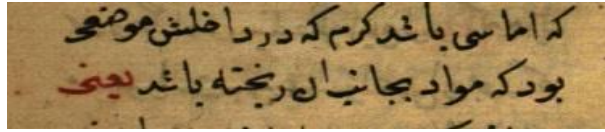 که اماسی باشد کرم که در داخلش موضعی
بود که مواد بجانب ان ریخته باشد یعنی